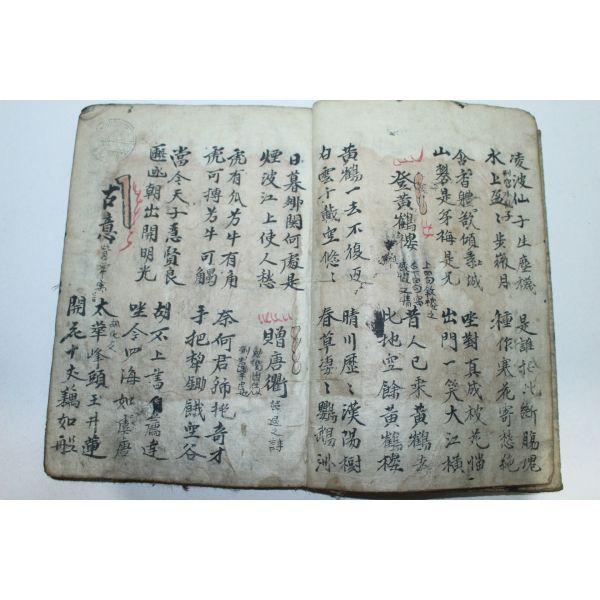 凌波仙子生塵襪 是誰招此斷腸魂
水上盈〻步微月 種作寒花寄愁絶
含香體欲傾素城 坐對真成被花惱
山礬是弟梅是兄 出門一笑大江橫
登黃鶴樓 昔人已乘黃鶴去
此地空餘黃鶴樓
黃鶴一去不復返 晴川歷〻漢陽樹
白雲千載空悠〻 春草萋〻鸚鵡洲
日暮鄉關何處是
煙波江上使人愁 贈唐衢 退之詩
虎有爪兮牛有角
虎可搏兮牛可觸 奈何君獨抱奇才
手把犁鋤餓空谷
當今天子急賢良
匭函朝出開明光 胡不上書自薦達
坐令四海如虞唐
古意 太華峰頭玉井蓮
開花十丈藕如船